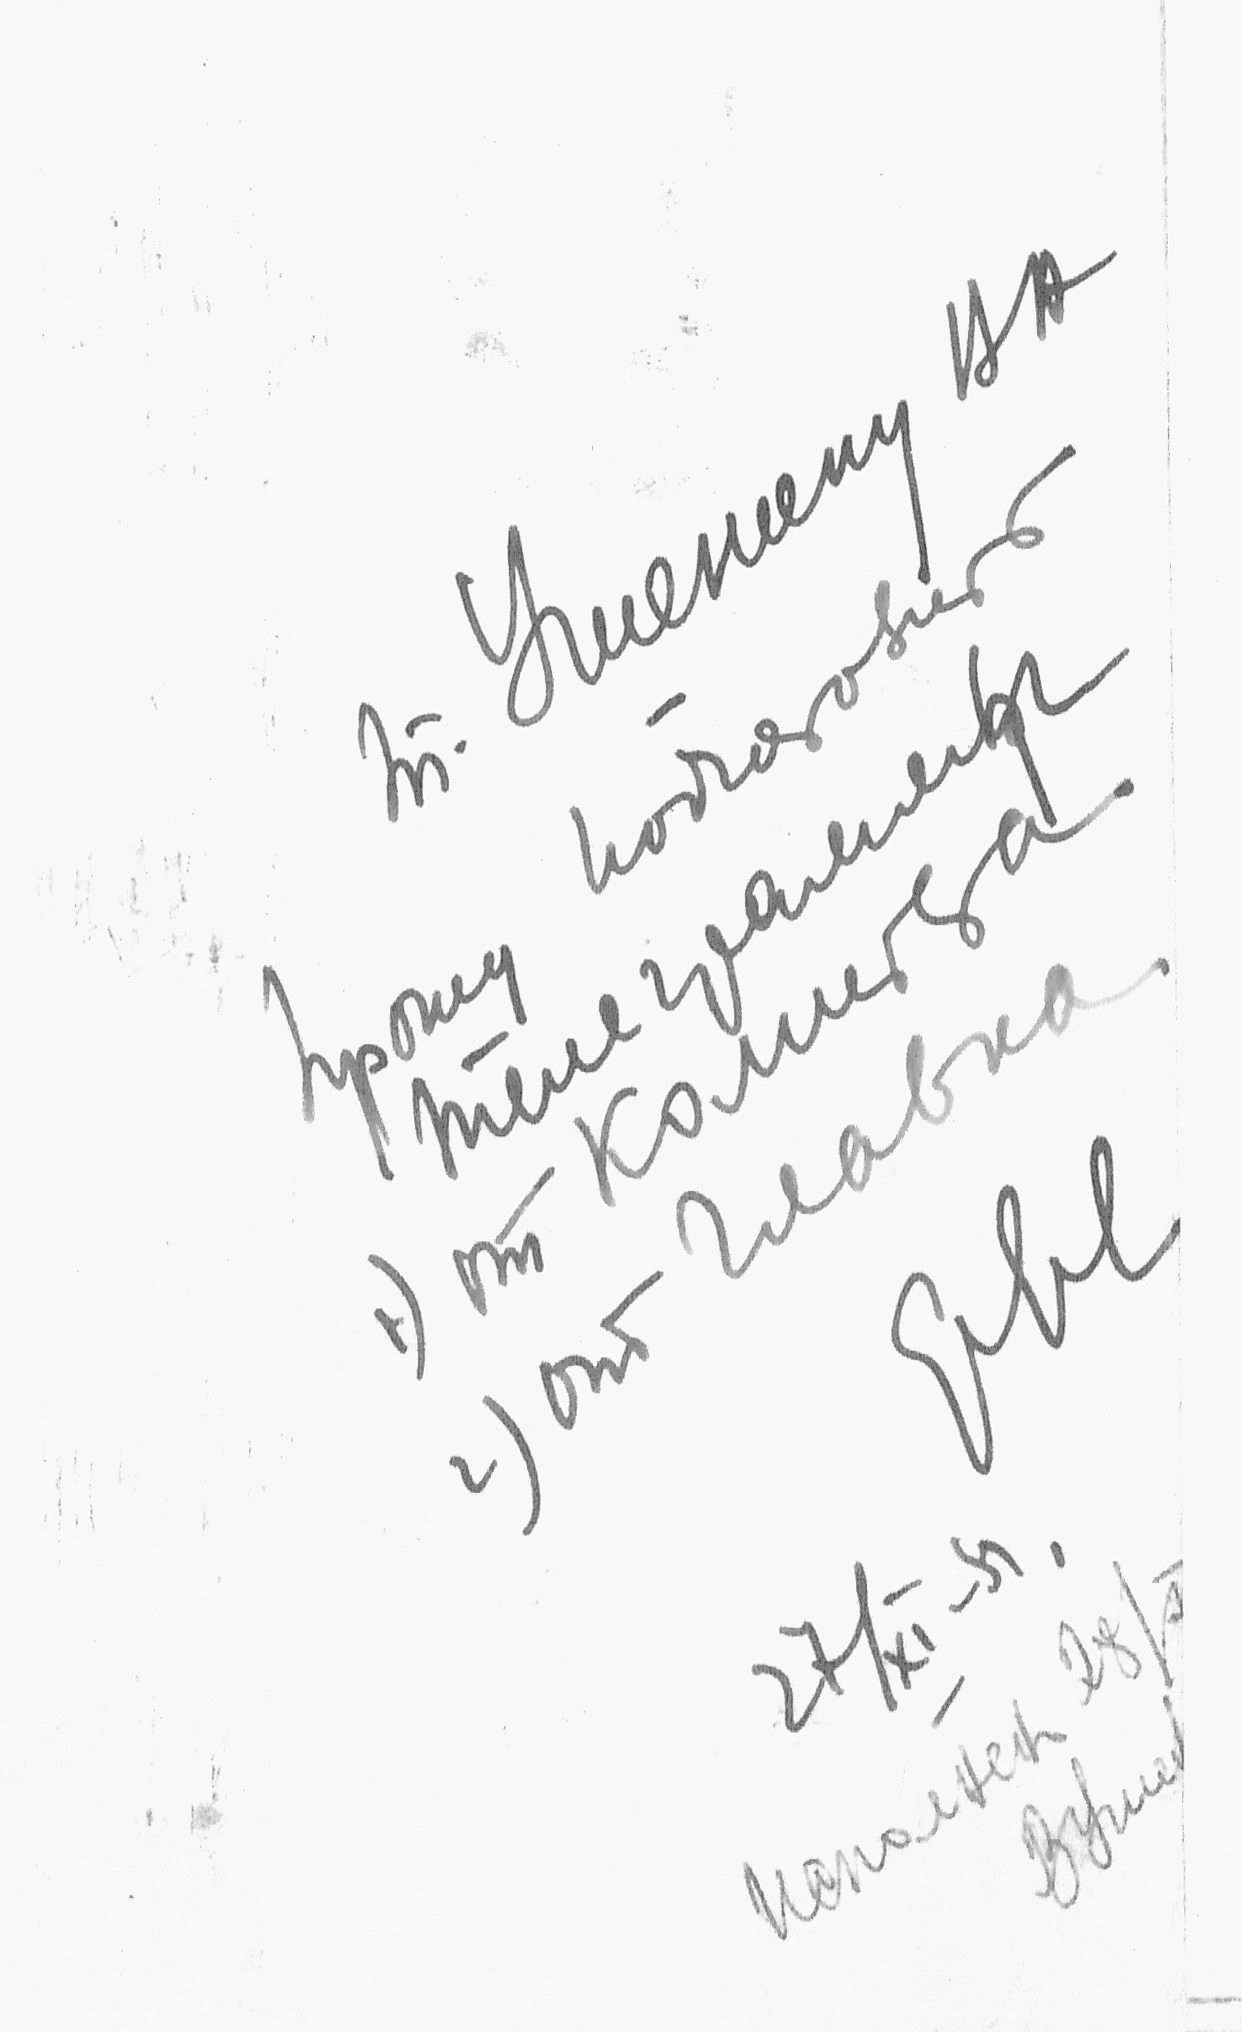 т.
Прошу подготовить
телеграммы
1) от Комитета
2) от Главка
27/XI-51.
Исполнен 28/